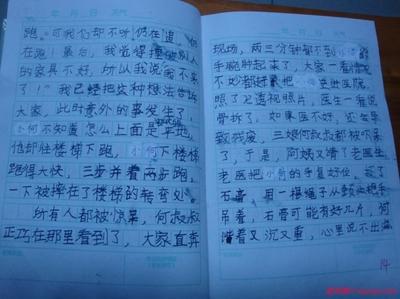 年 月 日 天气
跑。可我们却不听仍在追、仍
在跑！最后，我觉得撞坏别人
的家具不好，所以我说我不来
了！"我已经把这种想法告诉
大家，此时意外的事发生了，
小何不知道怎么上面是平地，
他却往楼梯下跑，小何下楼梯
跑得太快，三步并着两步跑，
一下被摔在了楼梯的转弯处。
所有人都被惊呆，何叔叔
正巧在那里看到了，大家直奔
现场，两三分钟都不到小
手腕肿起来了，大家一看情况
不妙都好
照了X透视照片，医生一看说
骨拆了，如果医不好，还会导
致残废，三娘何叔叔都被吓呆
了，于是，阿姨又请了老医生
老医把小何的手复好位，敷了
石膏，用一根绳子从颈处把手
吊着，石膏可能有好几斤，何
着又沉又重，心里说不出
14